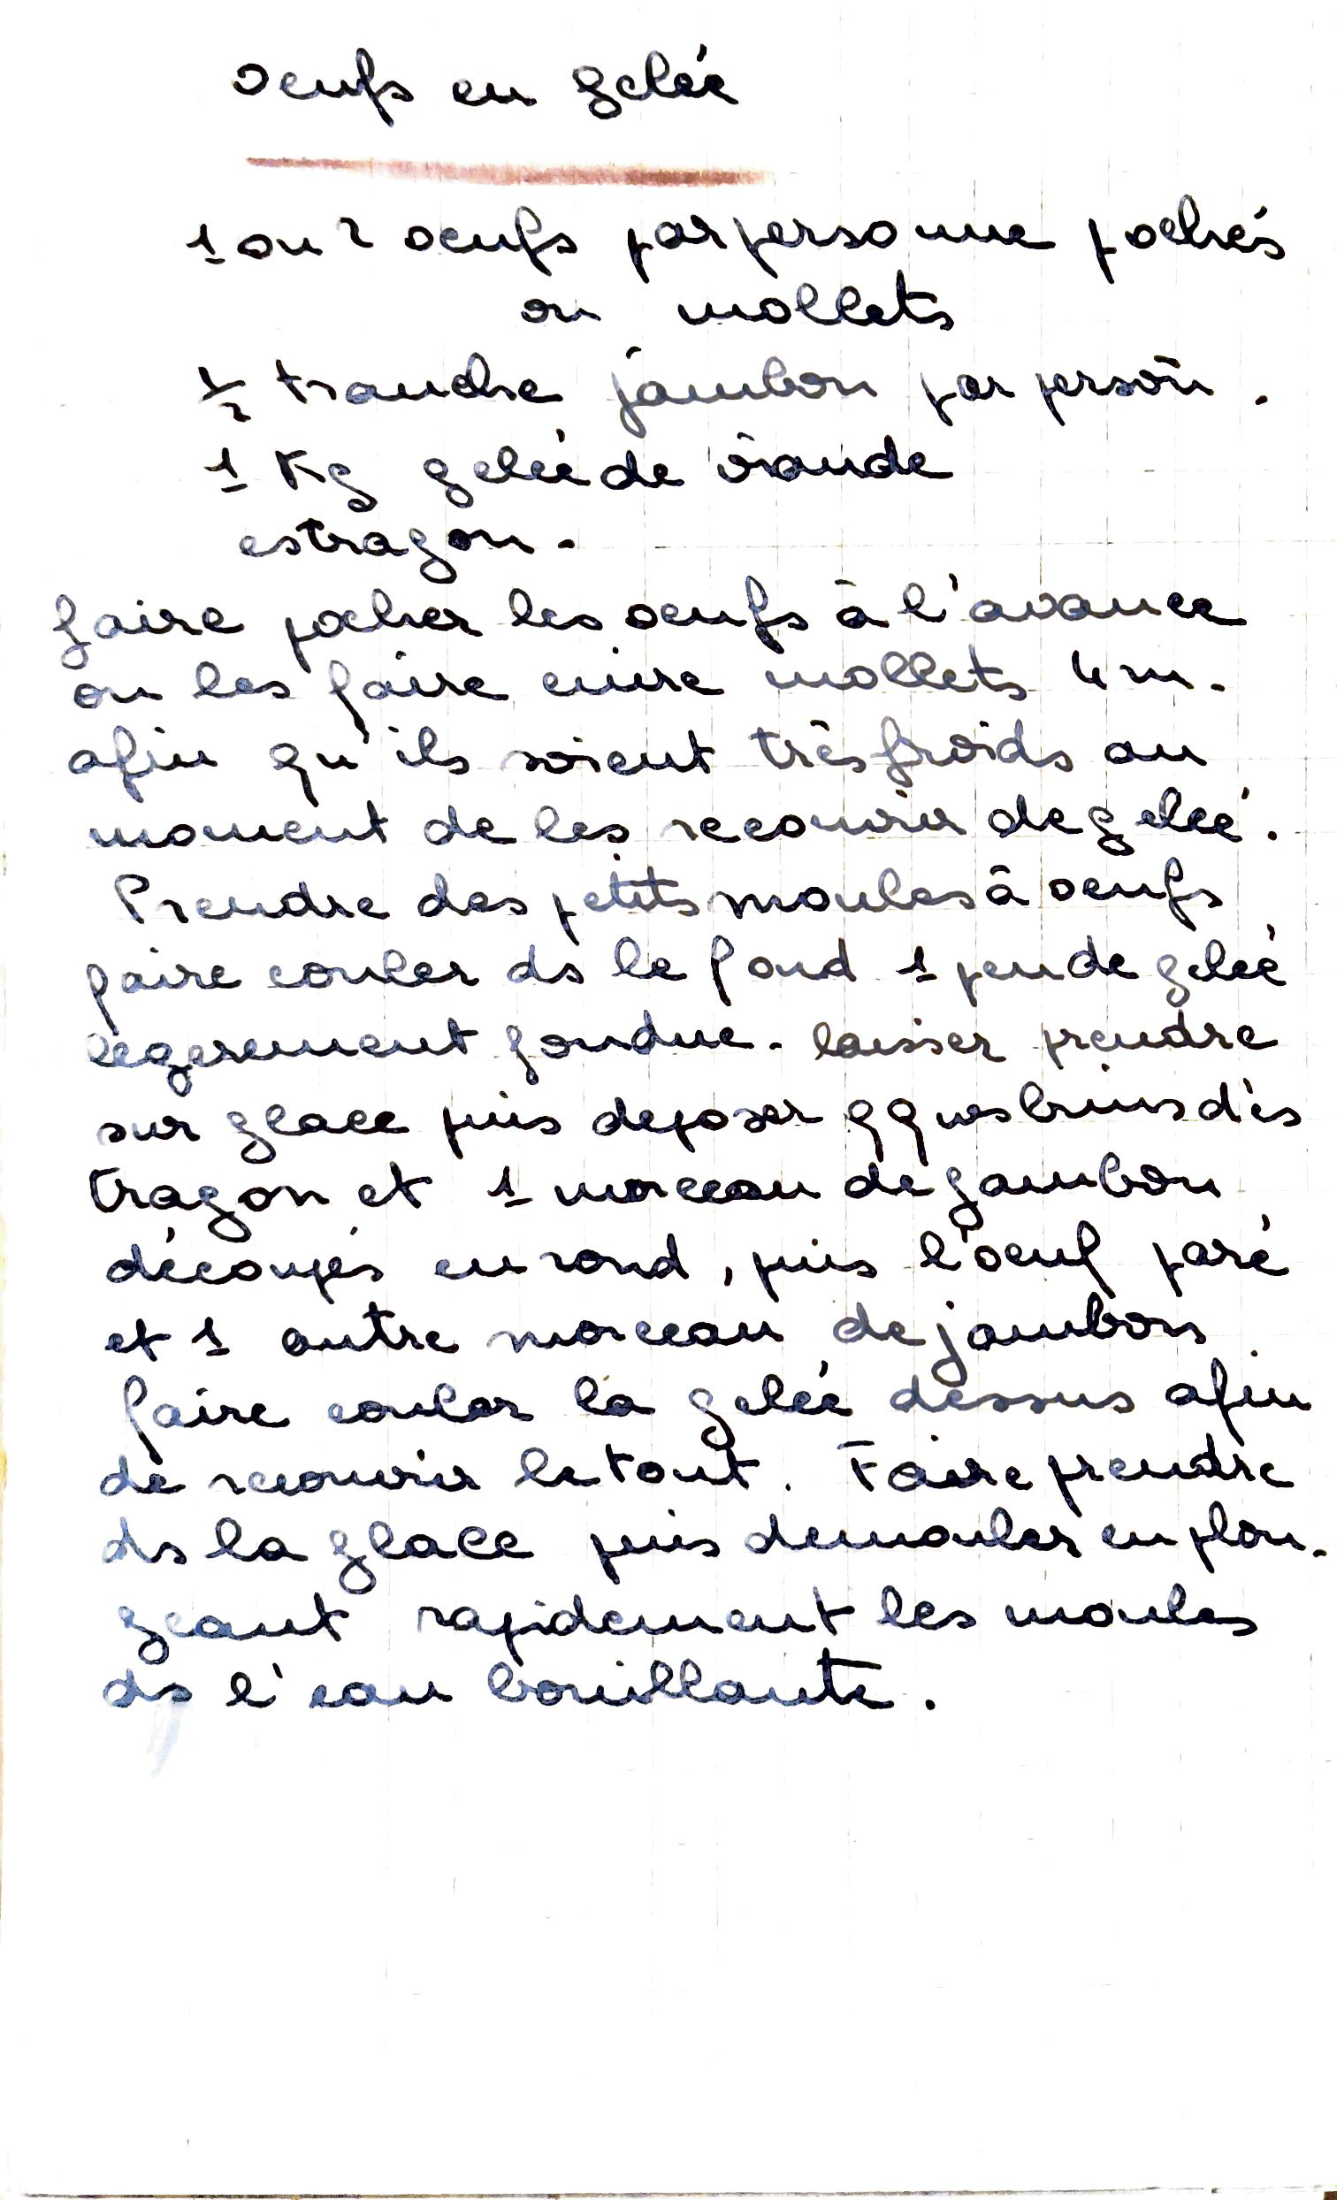 oeufs en gelée
1 ou 2 oeufs par personne pochés
ou mollets
1/2 tranche jambon par person.
1 Kg gelée de viande
estragon.
faire pocher les oeufs à l'avance
ou les faire cuire mollets 4 m.
afin qu'ils soient très froids au
moment de les recouvrir de gelée.
Prendre des petits moules à oeufs
faire couler ds le fond 1 peu de gelée
legerement fondue. laisser prendre
sur glace puis deposer qques brins d'es
tragon et 1 morceau de jambon
découpés en rond, puis l'oeuf paré
et 1 autre morceau de jambon
faire couler la gelée dessus afin
de recouvrir le tout. Faire prendre
ds la glace puis demouler en plon-
geant rapidement les moules
ds l'eau bouillante.